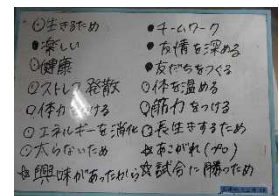 ⊙生きるため
●楽しい
⊙健康
⊙ストレス発散
○体力をつける
○エネルギーを消化
○太らないため
☆興味があったから
●チームワーク
●友情を深める
●友だちをつくる
○体を温める
○筋力をつける
○長生きするため
☆あこがれ(プロ)
☆試合に勝つため